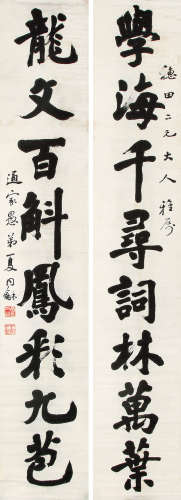 學海千尋詞林萬葉
田二兄大人雅屬
龍文百斛鳳彩九苞
通家愚弟夏同龢